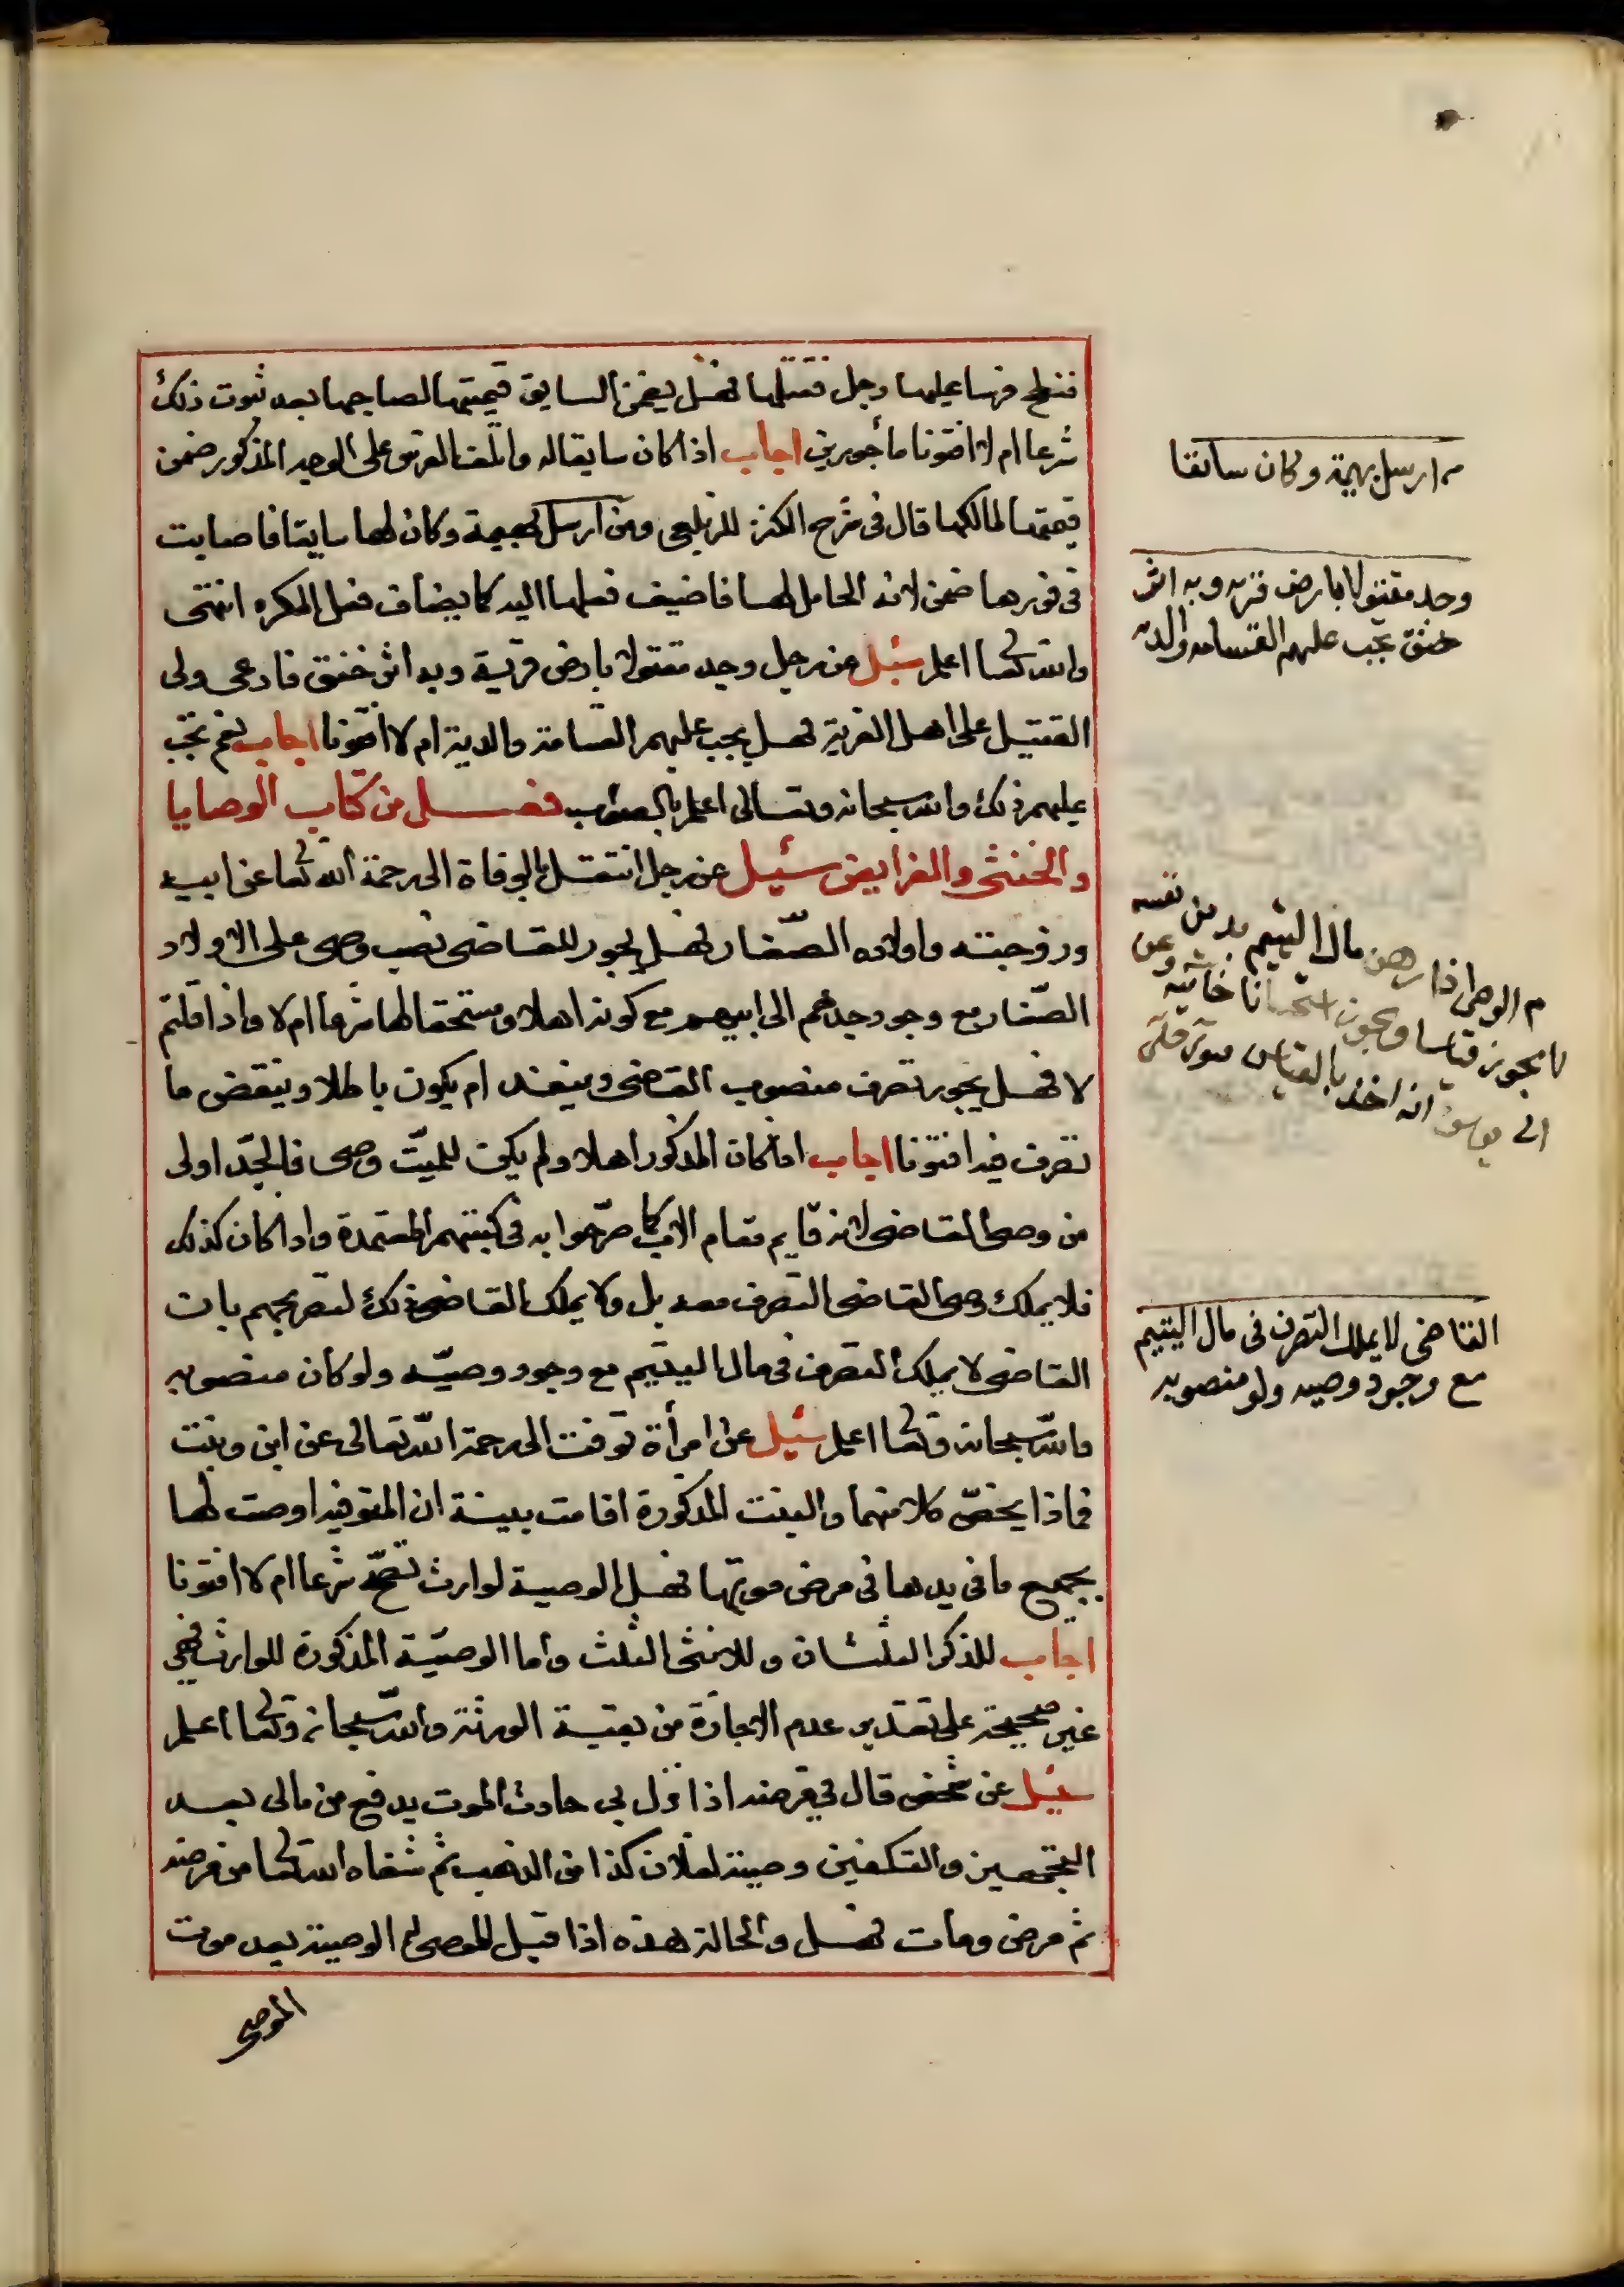 فنطح فرسا عليها رجل فقتلها فهل يضمن السايق قيمتها لصاحبها بعد ثبوت ذلك
شرعا ام لا افتونا مأجورين اجاب اذا كان سايقا له واتلف الفرس على الوجه المذكور ضمن
قيمتها لمالكها قال في شرح الكنز للزيلعي ومن ارسل بهيمة وكان لها سايقا فاصابت
في فورها ضمن لانه الحامل لها فاضيف فعلها اليه كما يضاف فعل المكره انتهى
والله تعا اعلم سئل عن رجل وجد مقتولا بارض قرية وبه اثر خنق فادعى ولى
القتيل على اهل القرية فهل يجب عليهم القسامة والدية ام لا افتونا اجاب نعم تجب
عليهم ذلك والله سبحانه وتعالى اعلم بالصواب فصل من كتاب الوصايا
والخنثى والفرايض سئيل عن رجل انتقل بالوفاة الى رحمة الله تعا عن ابيه
وزوجته واولاده الصغار فهل يجوز للقاضى نصب وصى على الاولاد
الصغار مع وجود جدهم الى ابيهم مع كونه اهلا ومستحقا لها شرعا ام لا واذا قلتم
لا فهل يجوز تصرف منصوب القاضى وينفذ ام يكون باطلا وينقض ما
تصرف فيه افتونا اجاب اذا كان المذكور اهلا ولم يكن للميت وصى فالجد اولى
من وصى القاضى لانه قايم مقام الاب كما صرحوا به في كتبهم المعتمدة واذا كان كذلك
فلا يملك وصى القاضى التصرف معه بل ولا يملك القاضى ذلك لتصريحهم بان
القاضى لا يملك التصرف في مال اليتيم مع وجود وصيه ولو كان منصوبه
والله سبحانه وتعا اعلم سئيل عن امرأة توفت الى رحمة الله تعالى عن ابن وبنت
فماذا يخص كلا منهما والبنت المذكورة اقامت بينة ان المتوفيه اوصت لها
بجميع ما في يدها في مرض موتها فهل الوصية لوارث تصح شرعا ام لا افتونا
اجاب للذكر الثلثان وللانثى الثلث واما الوصية المذكورة للوارث فهى
غير صحيحة على تقدير عدم الاجازة من بقية الورثة والله سبحانه وتعا اعلم
سئيل عن شخص قال في مرضه اذا نزل بي حادث الموت يدفع من مالى بعد
التجهيز والتكفين وصية لفلان كذا من الذهب ثم شفاه الله تعا من مرضه
ثم مرض ومات فهل والحالة هذه اذا قبل الموصى له الوصية بعد موت
الموصى
م ارسل بهيمة وكان سائقا
وجد مقتولا بارض قريه وبه اثر
خنق تجب عليهم القسامه والديه
م الوصى اذا رهن مال اليتيم بدين نفسه
لا يجوز قياسا ويجوز استحسانا خانيه وعن
ابى يوسف انه اخذ بالقياس
القاضى لا يملك التصرف في مال اليتيم
مع وجود وصيه ولو منصوبه